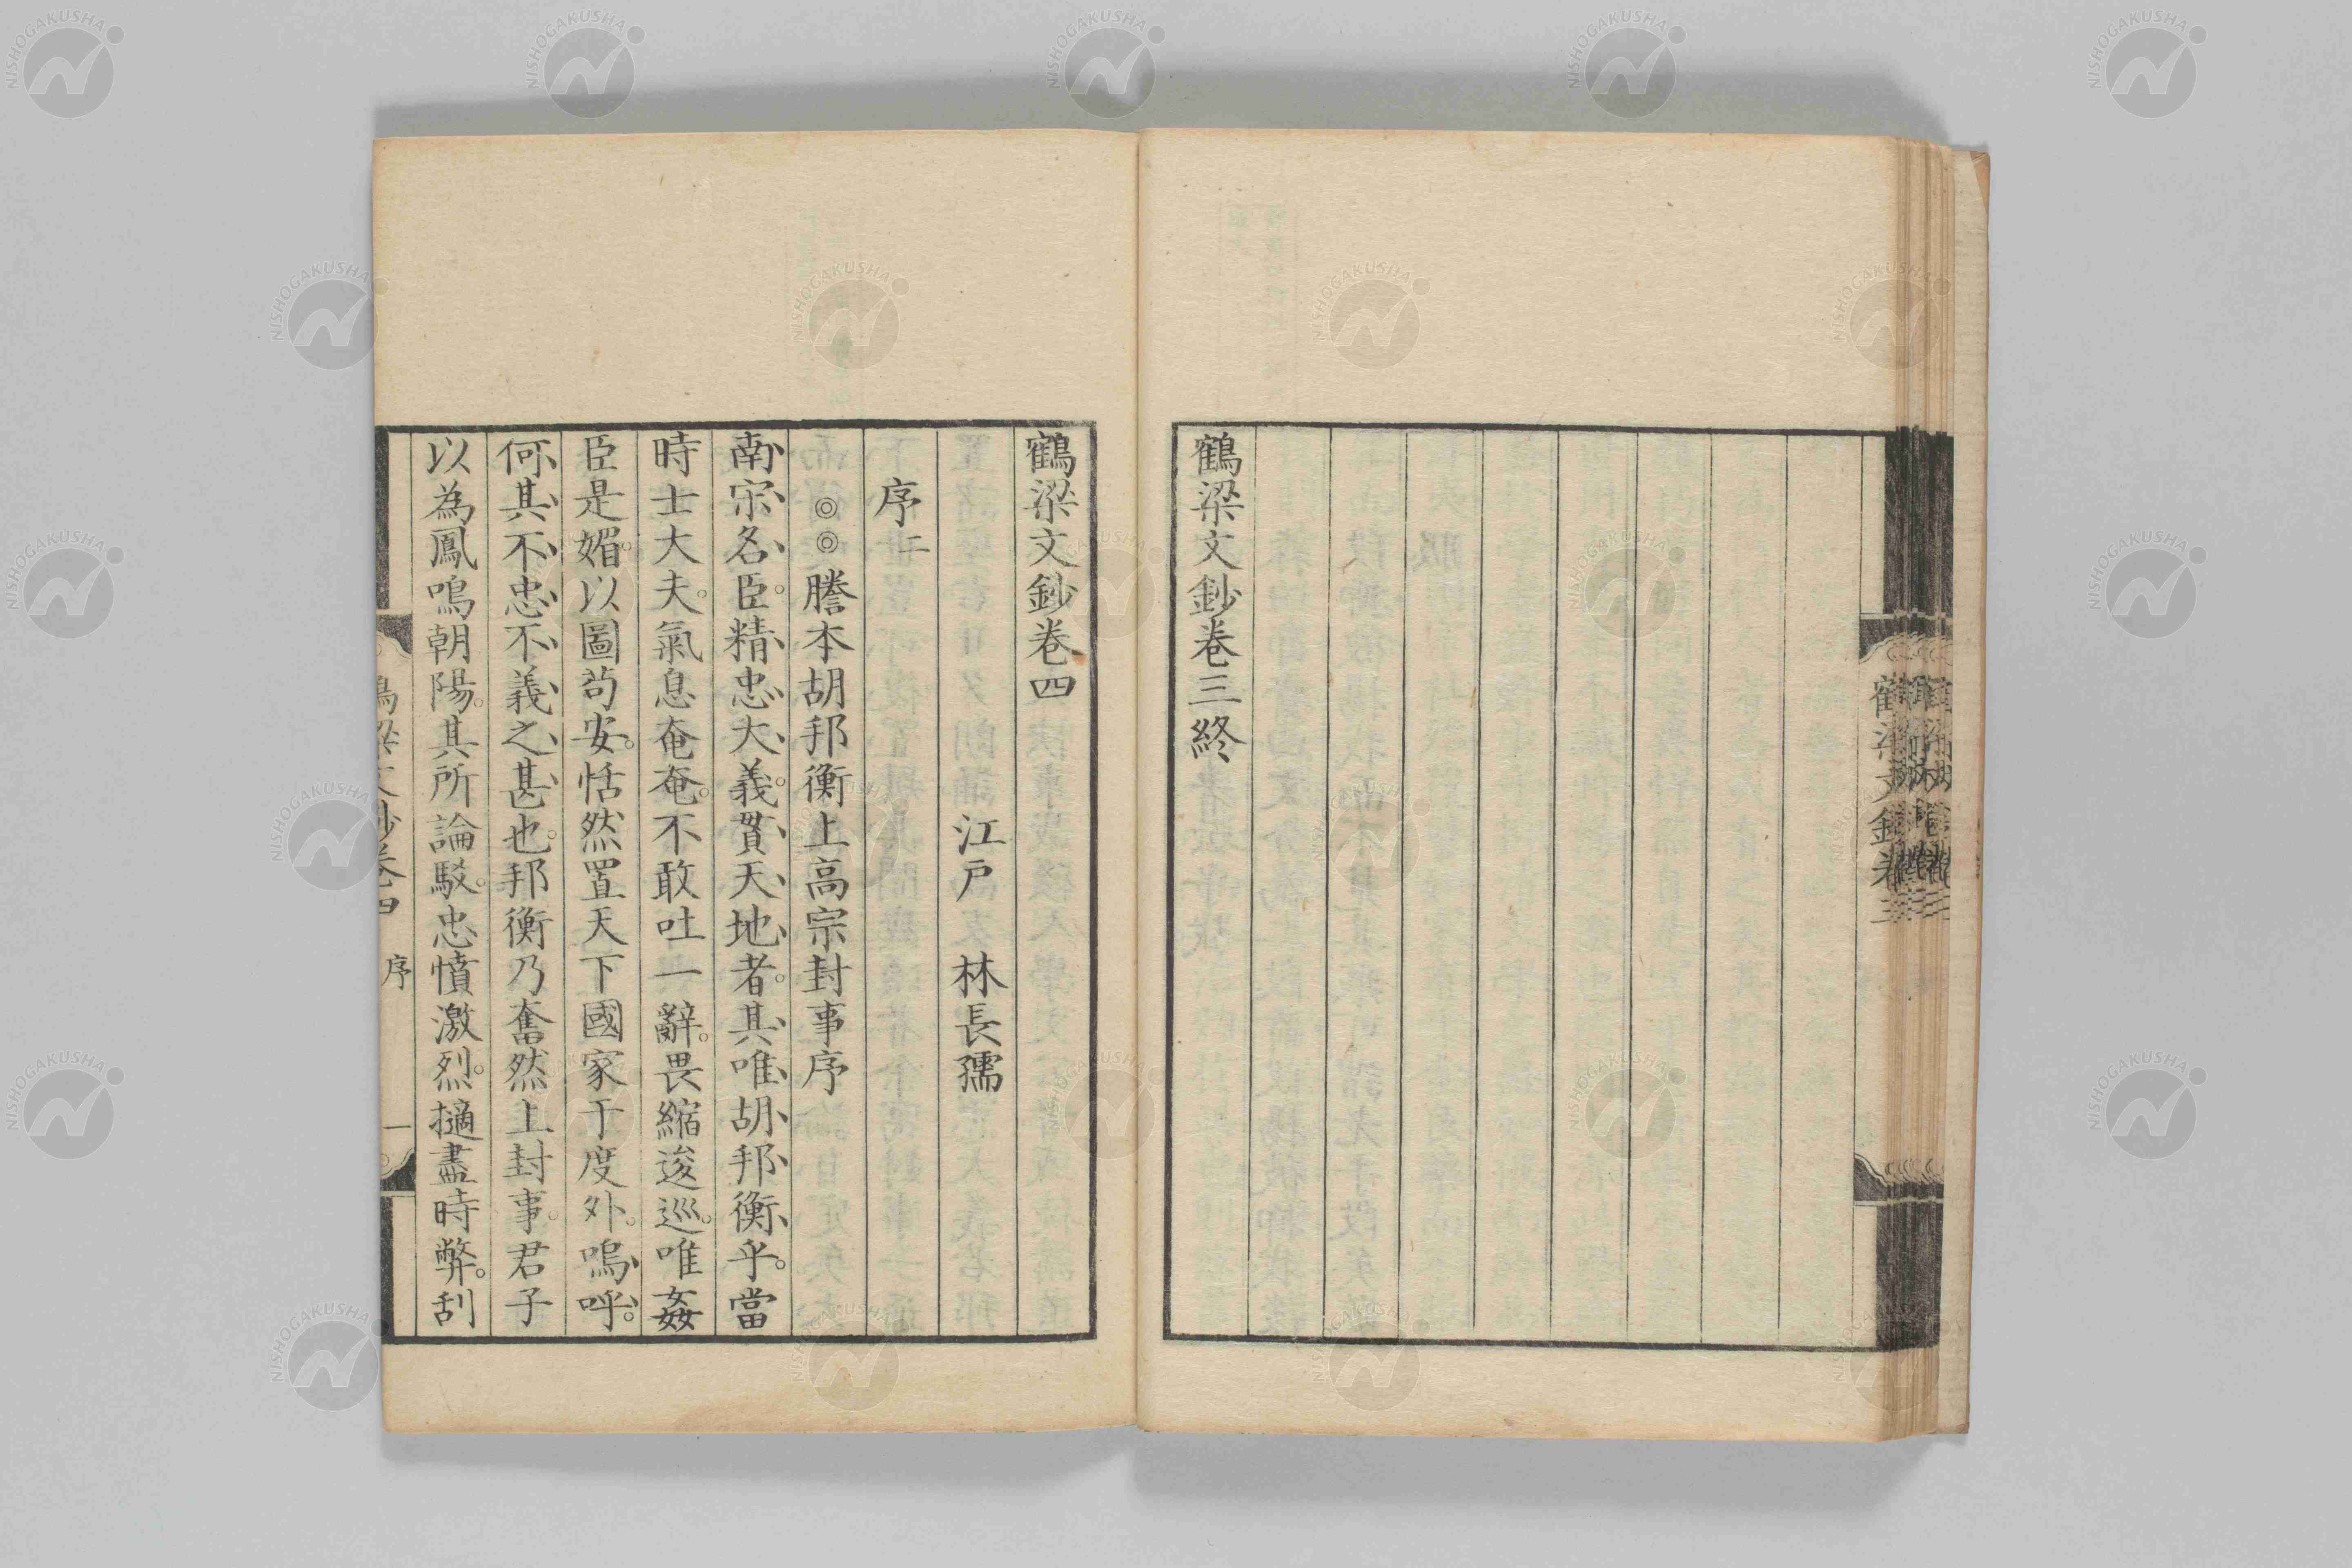 鶴梁文鈔卷三終
鶴梁文鈔卷四
江戸　林長孺
序二
◎◎謄本胡邦衡上高宗封事序
南宋名臣。精忠大義。貫天地者。其唯胡邦衡乎。當
時士大夫。氣息奄奄。不敢吐一辭。畏縮逡巡。唯姦
臣是媚。以圖苟安。恬然置天下國家于度外。嗚呼。
何其不忠不義之甚也。邦衡乃奮然上封事。君子
以為鳳鳴朝陽。其所論駁。忠憤激烈。擿盡時弊。刮
鶴梁文鈔卷四　序　一
NISHOGAKUSHA